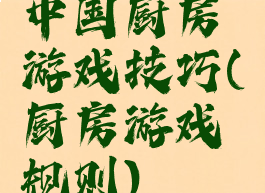 中国厨房
游戏技巧(
厨房游戏
规则)